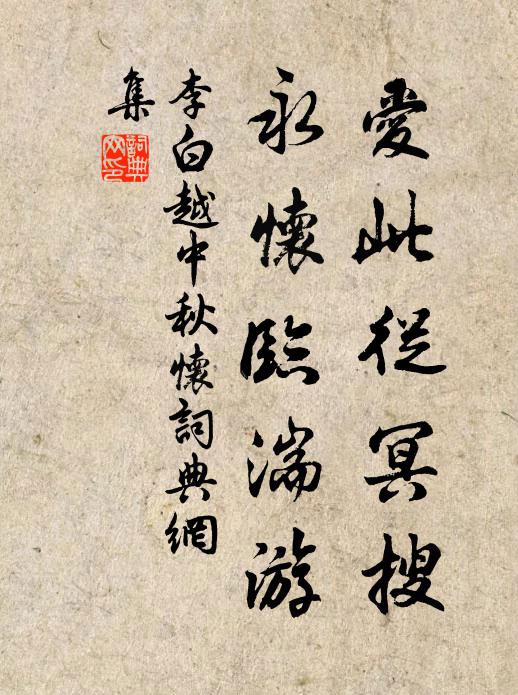 愛此從冥搜
永懷臨湍游
李白越中秋懷詞典網
集
詞典
网印